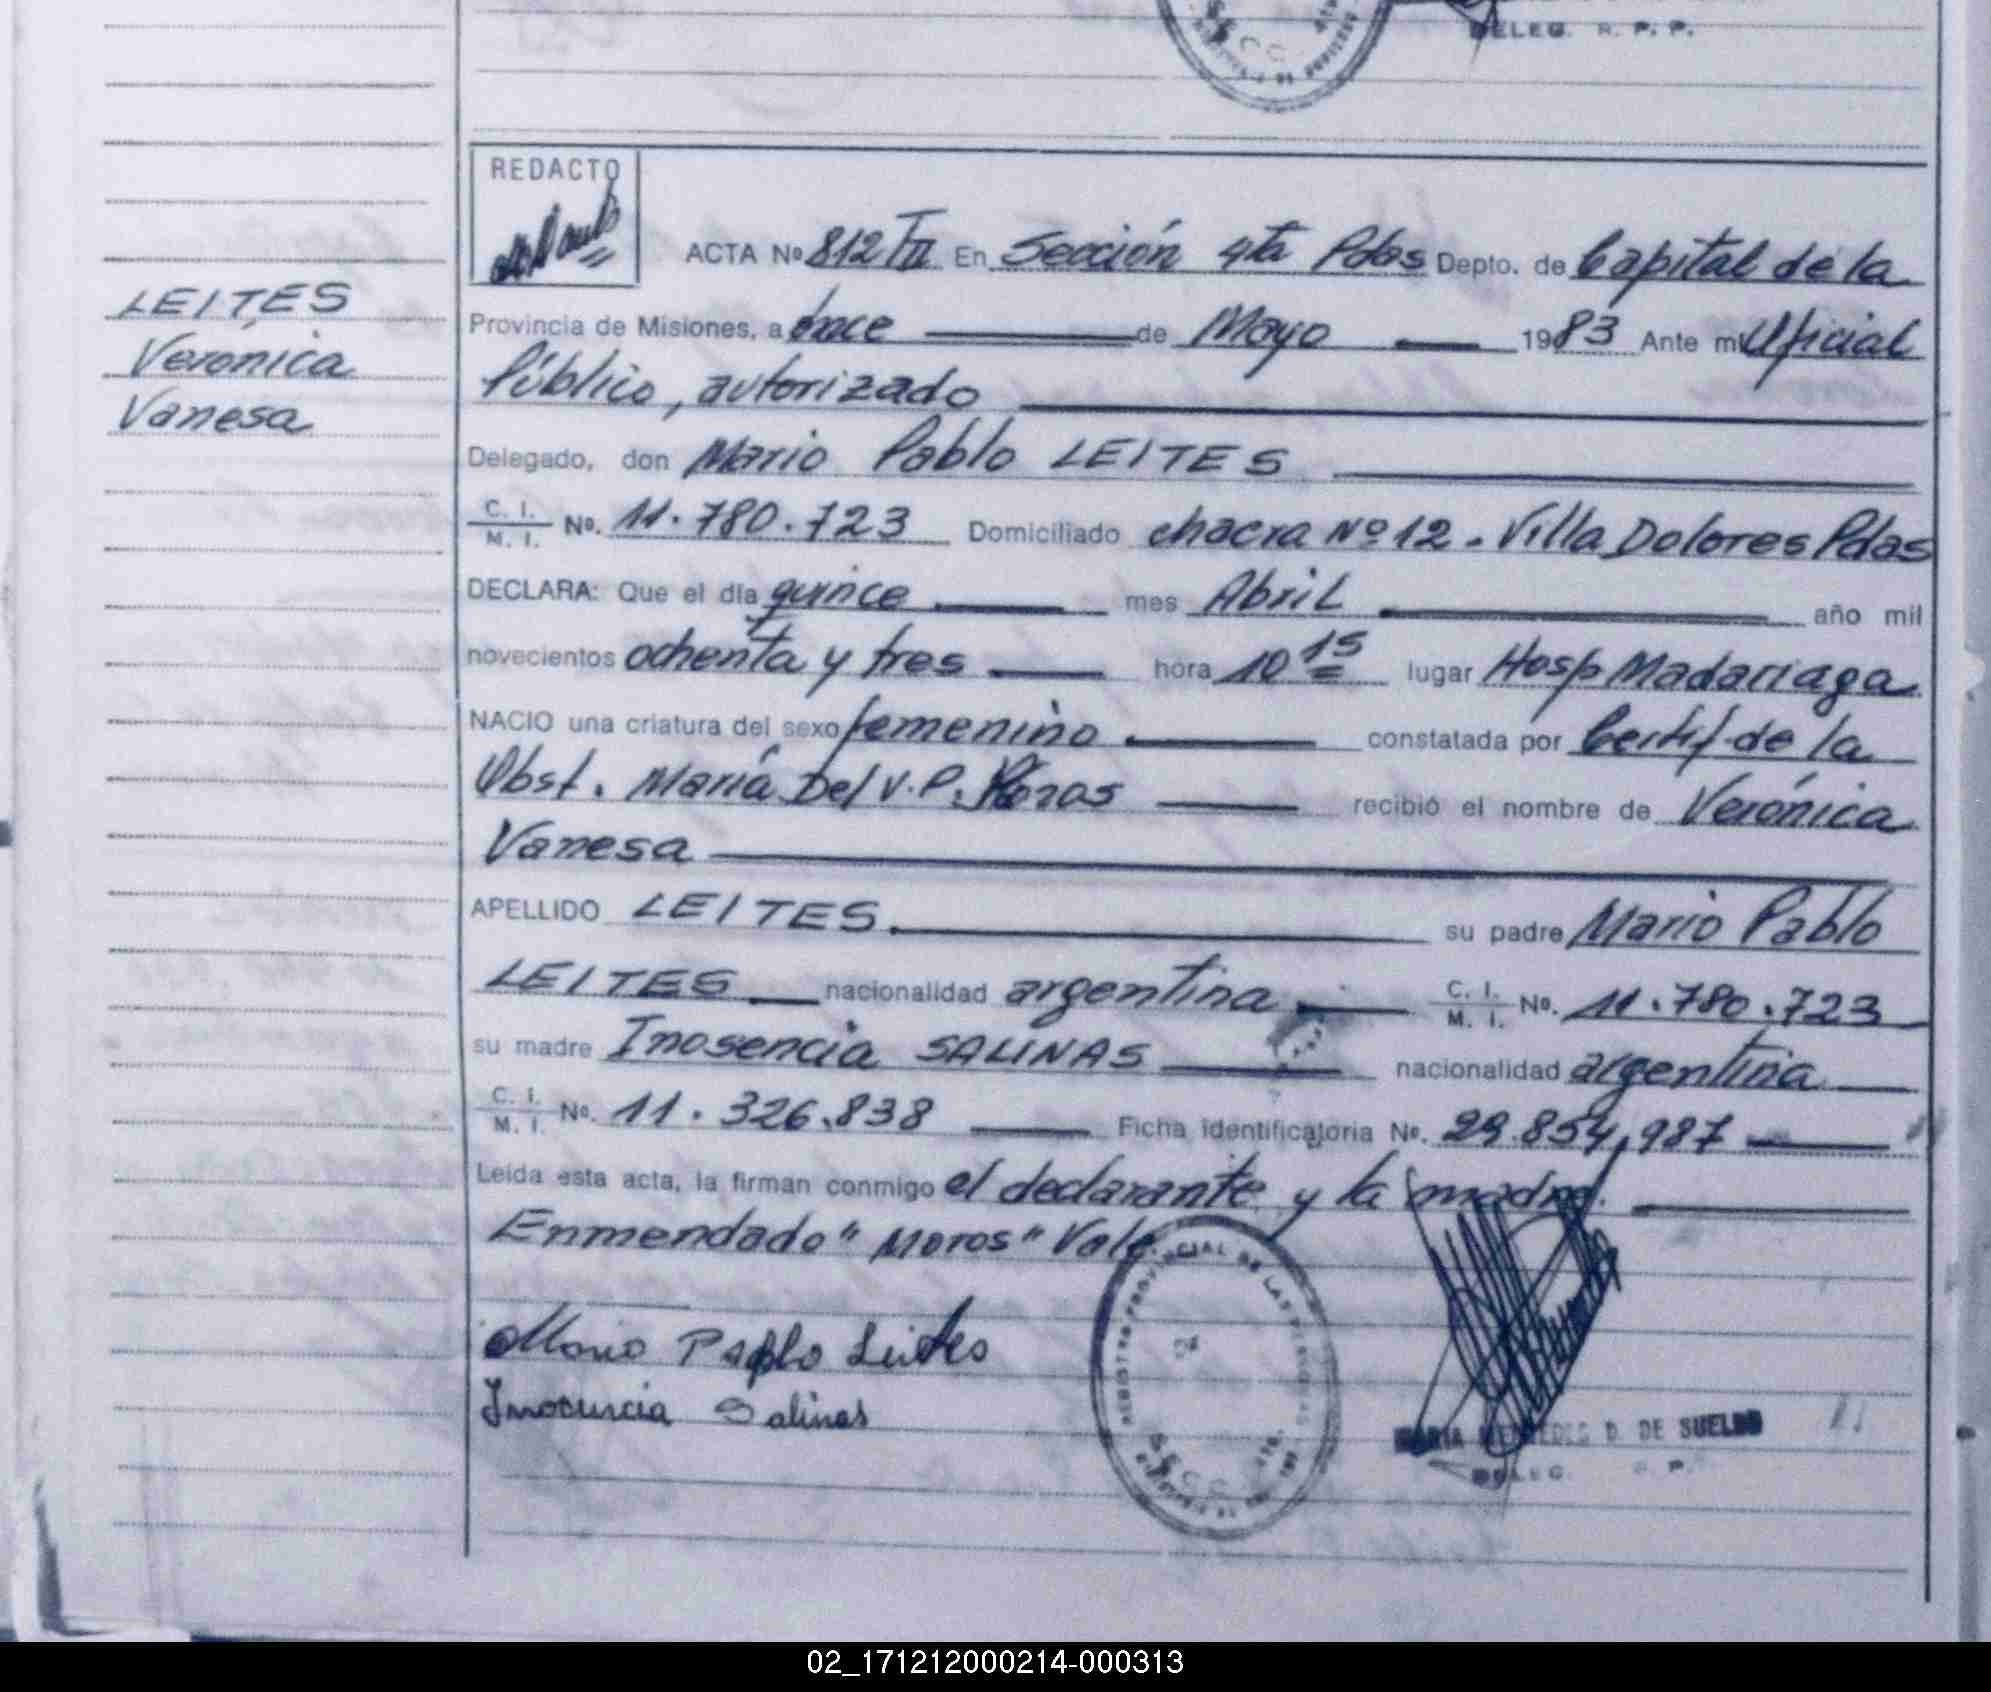 DELEG. R. P. P.
REDACTO
ACTA Nº 812 TII En Sección 4ta Pdas Depto. de Capital de la
LEITES
Verónica
Vanesa
Provincia de Misiones, a once de Mayo 1983 Ante mi Oficial
Público, autorizado
Delegado, don Mario Pablo LEITES
C. I.
M. I. Nº. 11.780.723 Domiciliado chacra Nº 12 - Villa Dolores Pdas
DECLARA: Que el día quince mes Abril año mil
novecientos ochenta y tres hora 10 15 lugar Hosp Madariaga
NACIO una criatura del sexo femenino constatada por Certif de la
Obst. María Del V. P. recibió el nombre de Verónica
Vanesa
APELLIDO LEITES su padre Mario Pablo
LEITES nacionalidad argentina C. I.
M. I. Nº. 11.780.723
su madre Inosencia SALINAS nacionalidad argentina
C. I.
M. I. Nº. 11.326.838 Ficha identificatoria Nº. 29.854,987
Leída esta acta, la firman conmigo el declarante y la madre.
Enmendado "Moros" Vale.
Mario Pablo Leites
Inocencia Salinas
REGISTRO PROVINCIAL DE LAS PERSONAS
SECC
D. DE SUELDO
DELEG. R. P.
02_171212000214-000313